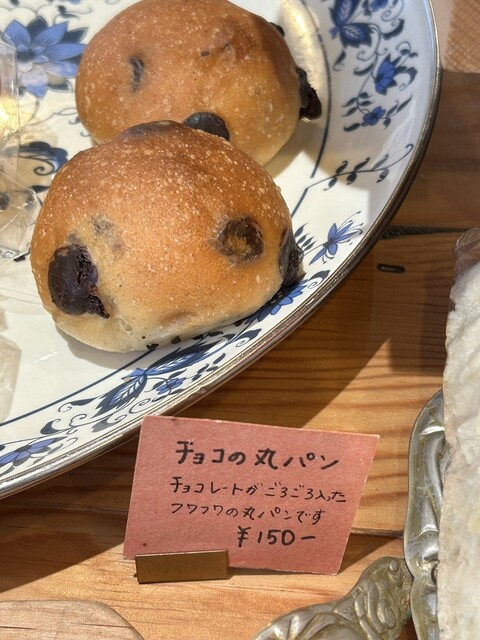 チョコの丸パン
チョコレートがごろごろ入った
フワフワの丸パンです
¥150−